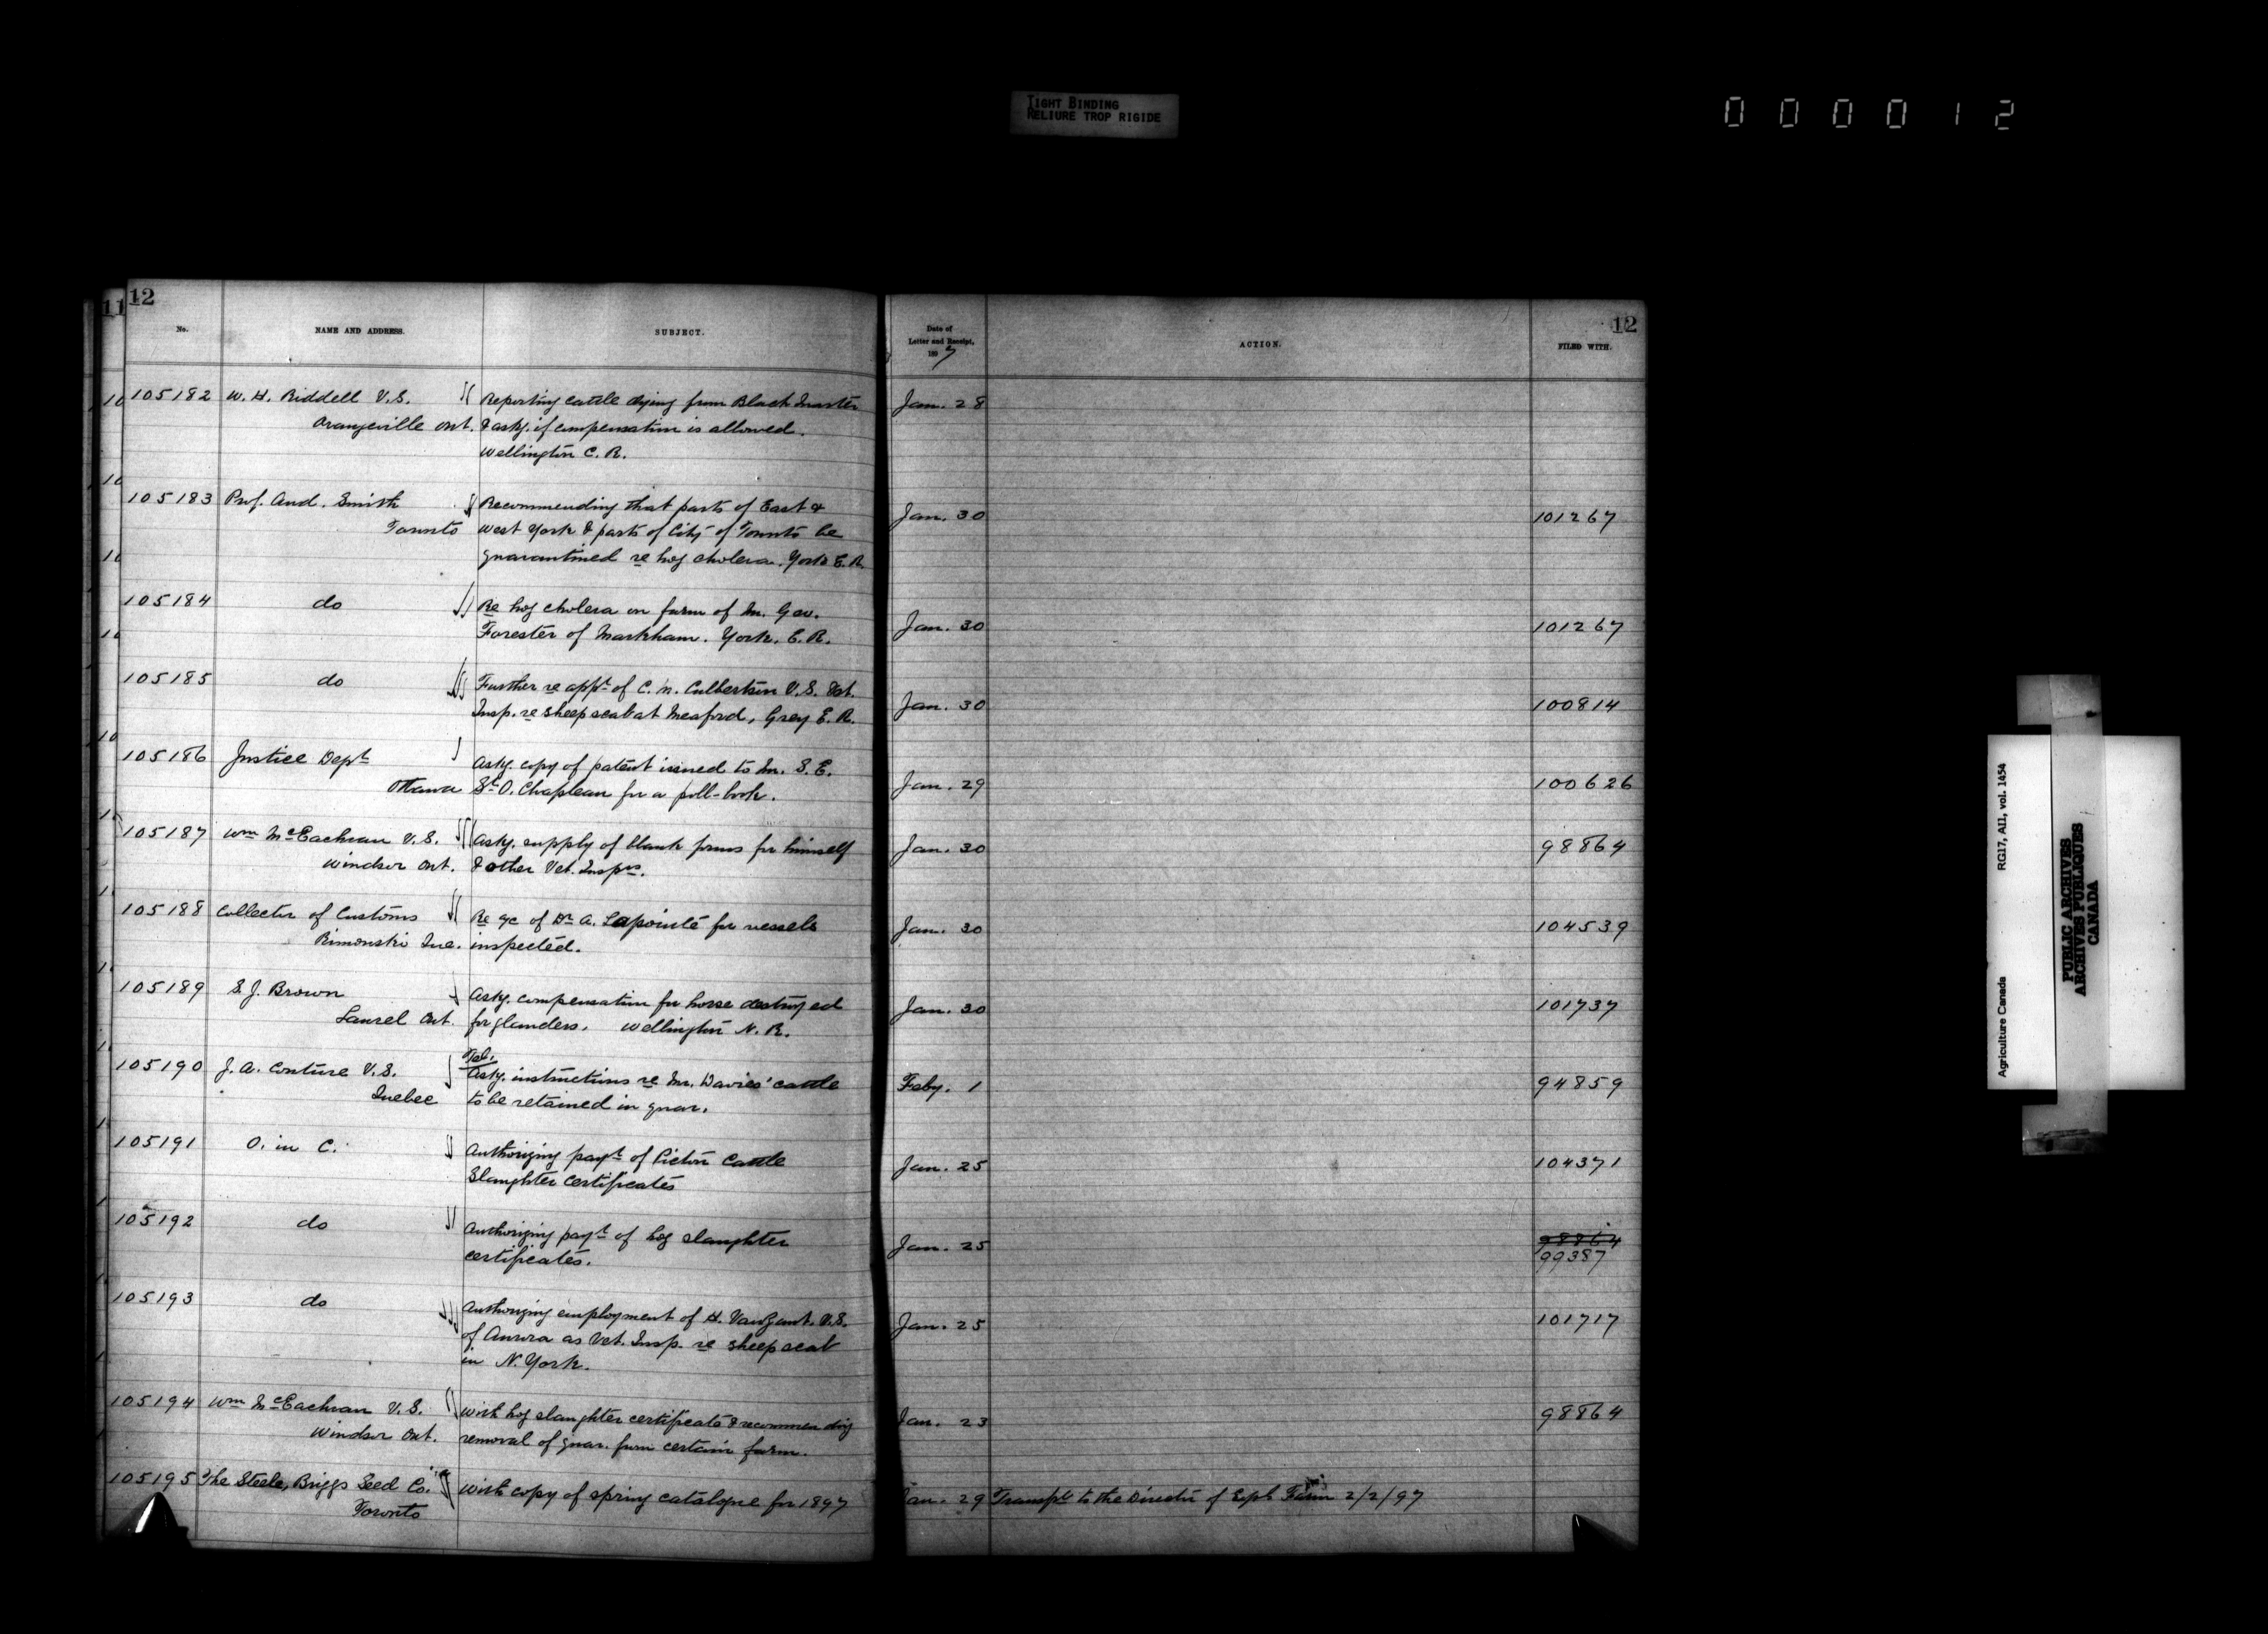 TIGHT BINDING
RELIURE TROP RIGIDE
0 0 0 0 1 2
11
12
No.
NAME AND ADDRESS.
SUBJECT.
Date of
Letter and Receipt,
1897
ACTION.
12
FILED WITH.
105182 W. H. Riddell V.S. Reporting cattle dying from Black Quarter Jan. 28
Orangeville Ont. & askg. if compensation is allowed.
Wellington C. R.
105183 Prof. And. Smith Recommending that parts of East & Jan. 30 101267
Toronto West York & parts of City of Toronto be
quarantined re hog cholera. York E. R.
105184 do Re hog cholera on farm of Mr. Geo. Jan. 30 101267
Forester of Markham. York. E. R.
105185 do Further re appt of C. N. Culbertson V.S. Vet. Jan. 30 100814
Insp. re sheep scab at Meaford, Grey E. R.
105186 Justice Dept Askg. copy of patent issued to Mr. S. E. Jan. 29 100626
Ottawa St. O. Chapleau for a poll-book.
105187 Wm McEachran V.S. Askg. supply of blank forms for himself Jan. 30 98864
Windsor Ont. & other Vet. Insprs.
105188 Collector of Customs Re a/c of Dr A. Lapointe for vessels Jan. 30 104539
Rimouski Que. inspected.
105189 S. J. Brown Askg. compensation for horse destroyed Jan. 30 101737
Laurel Ont. for glanders. Wellington N. R.
Tel.
105190 J. A. Couture V.S. Askg. instructions re Mr. Davies' cattle Feby. 1 94859
Quebec to be retained in quar.
105191 O. in C. Authorizing payt of Pictou Cattle Jan. 25 104371
Slaughter Certificates
105192 do Authorizing payt of hog slaughter Jan. 25 98864
certificates. 99387
105193 do Authorizing employment of H. VanZant. V.S. Jan. 25 101717
of Aurora as Vet. Insp. re sheep scab
in N. York.
105194 Wm McEachran V.S. With hog slaughter certificate & recommending Jan. 23 98864
Windsor Ont. removal of quar. from certain farm.
105195 The Steele, Briggs Seed Co. With copy of spring catalogue for 1897 Jan. 29 Transfd to the Director of Expl Farm 2/2/97
Toronto
Agriculture Canada RG17, AII, vol. 1454
PUBLIC ARCHIVES
ARCHIVES PUBLIQUES
CANADA